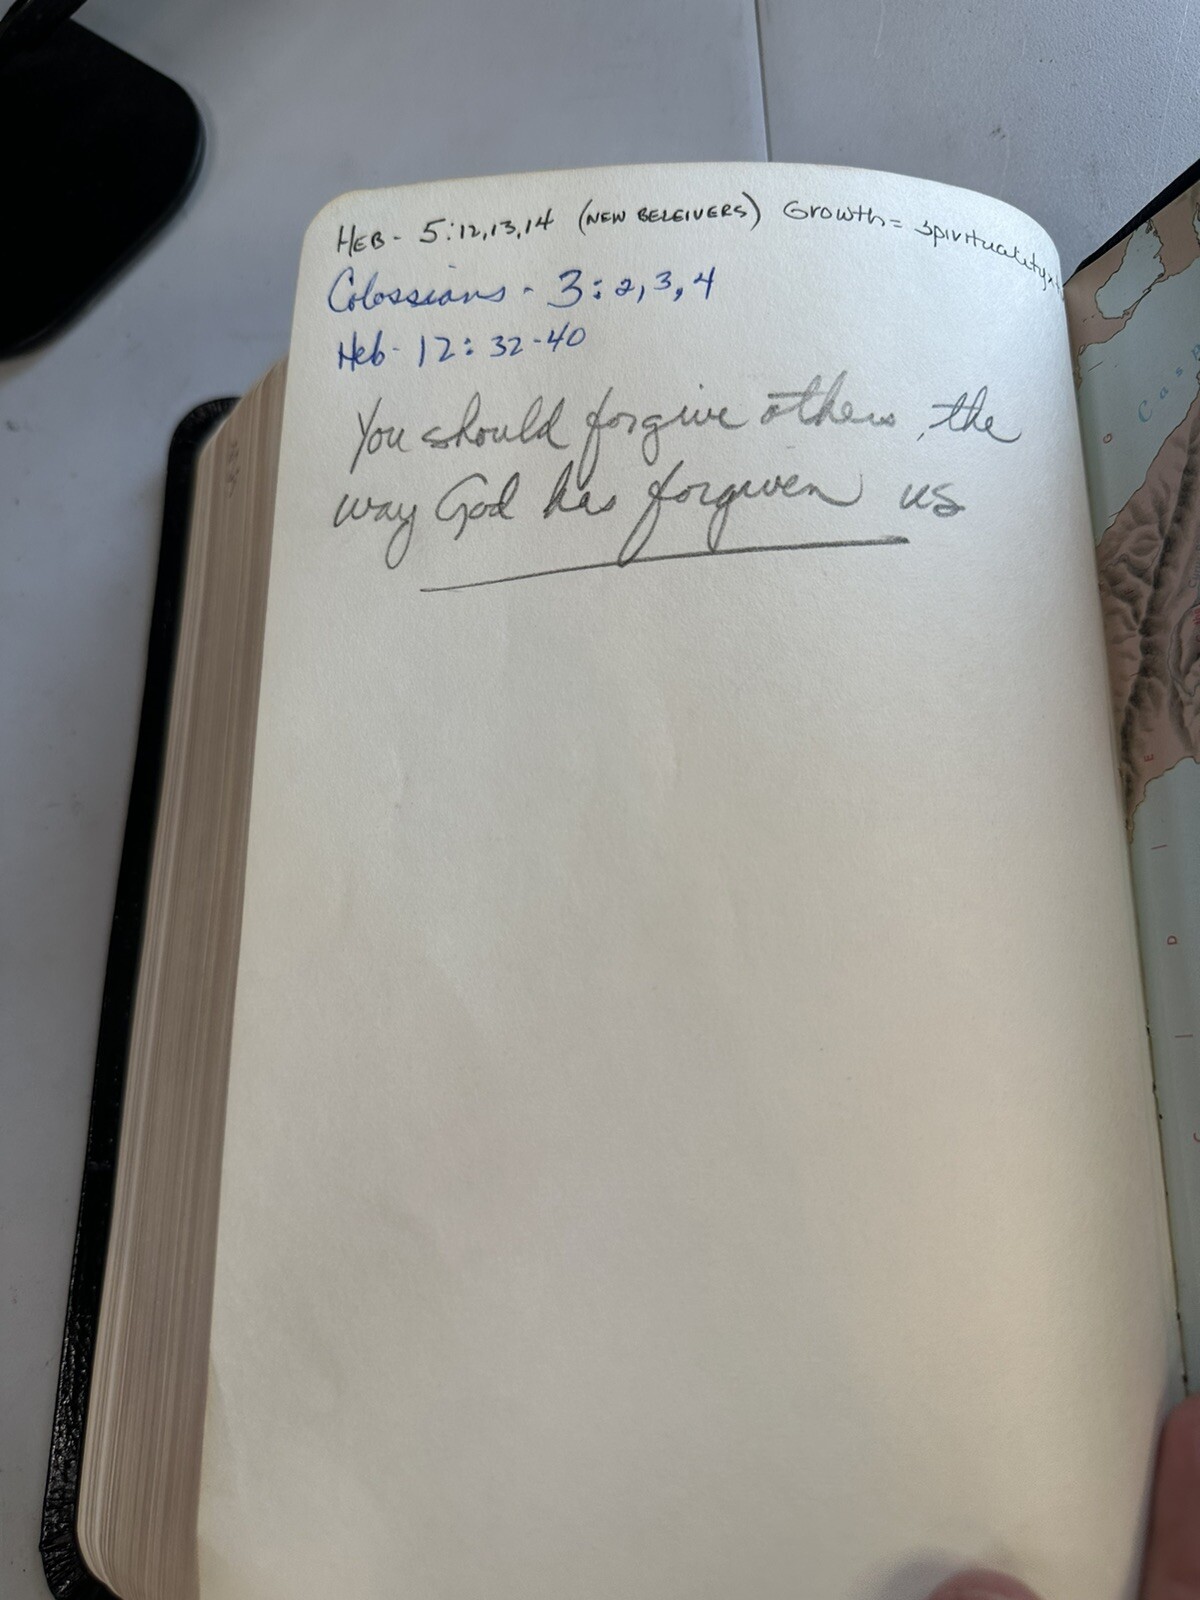 HEB - 5:12,13,14 (NEW BELEIVERS) Growth = spirituality
Colossians - 3:2,3,4
Heb - 12:32-40
You should forgive others, the
way God has forgiven us